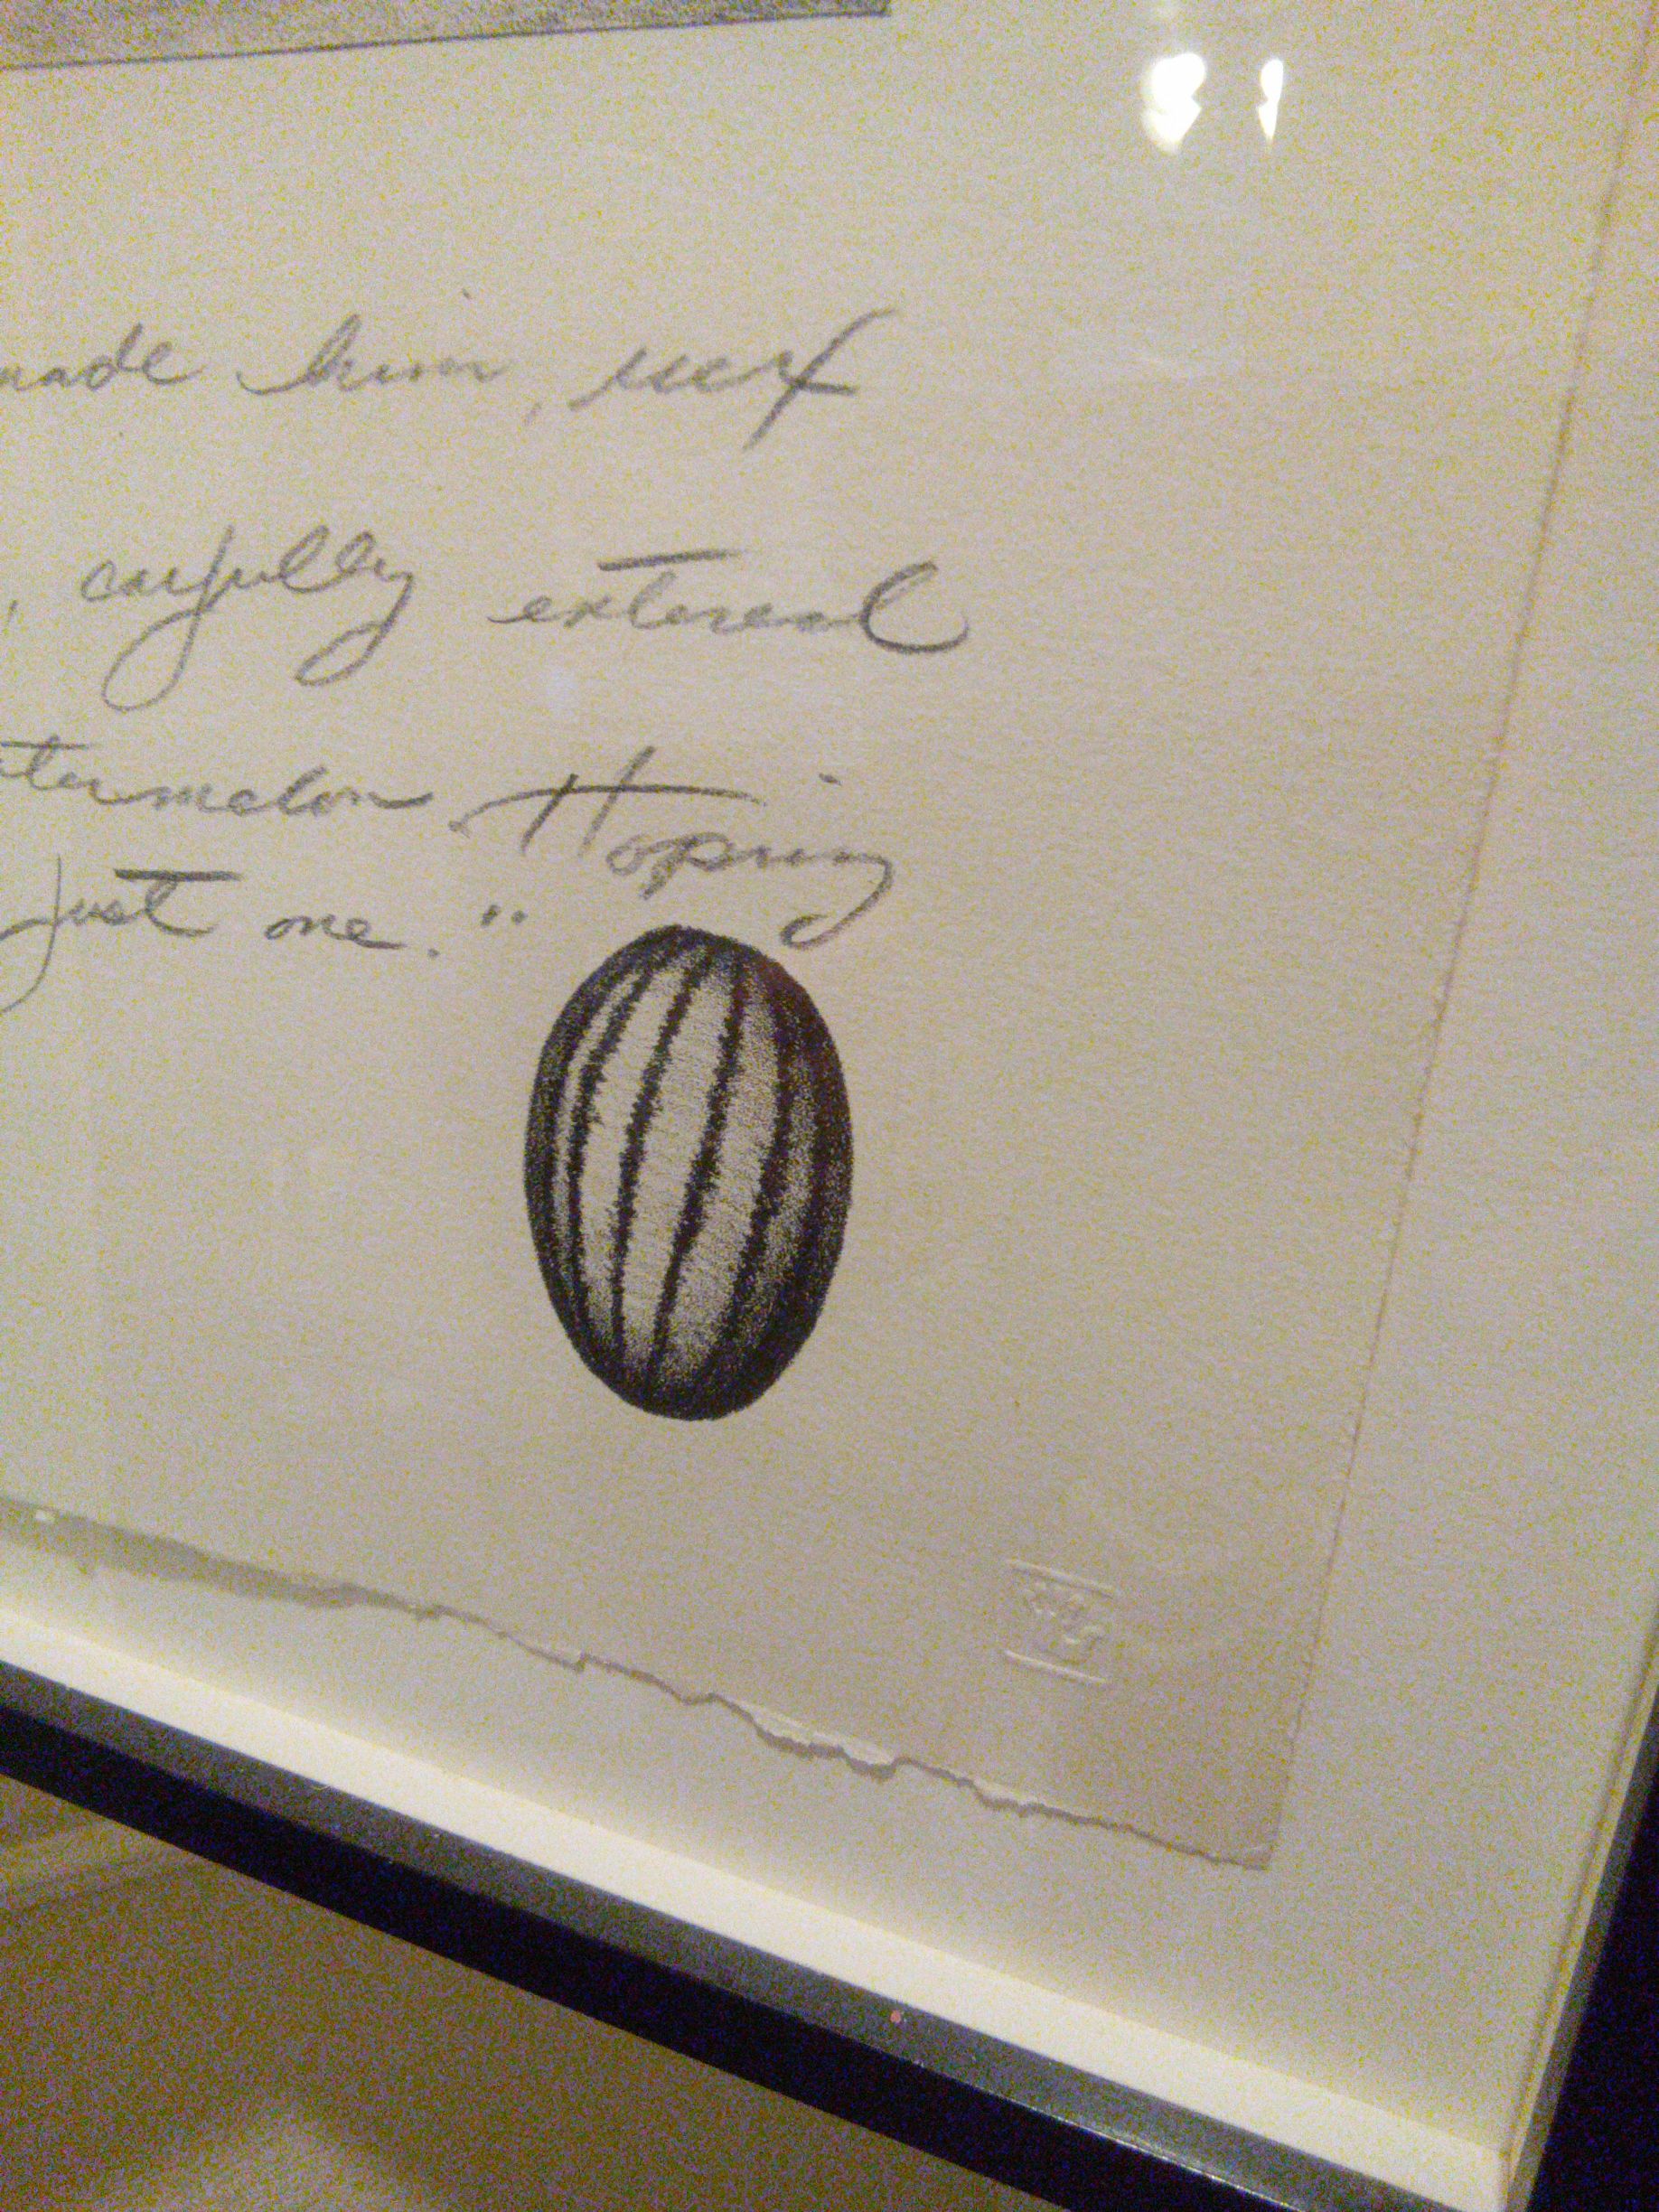 made him, next
, carfully extend
termelon. Hoping
just one."